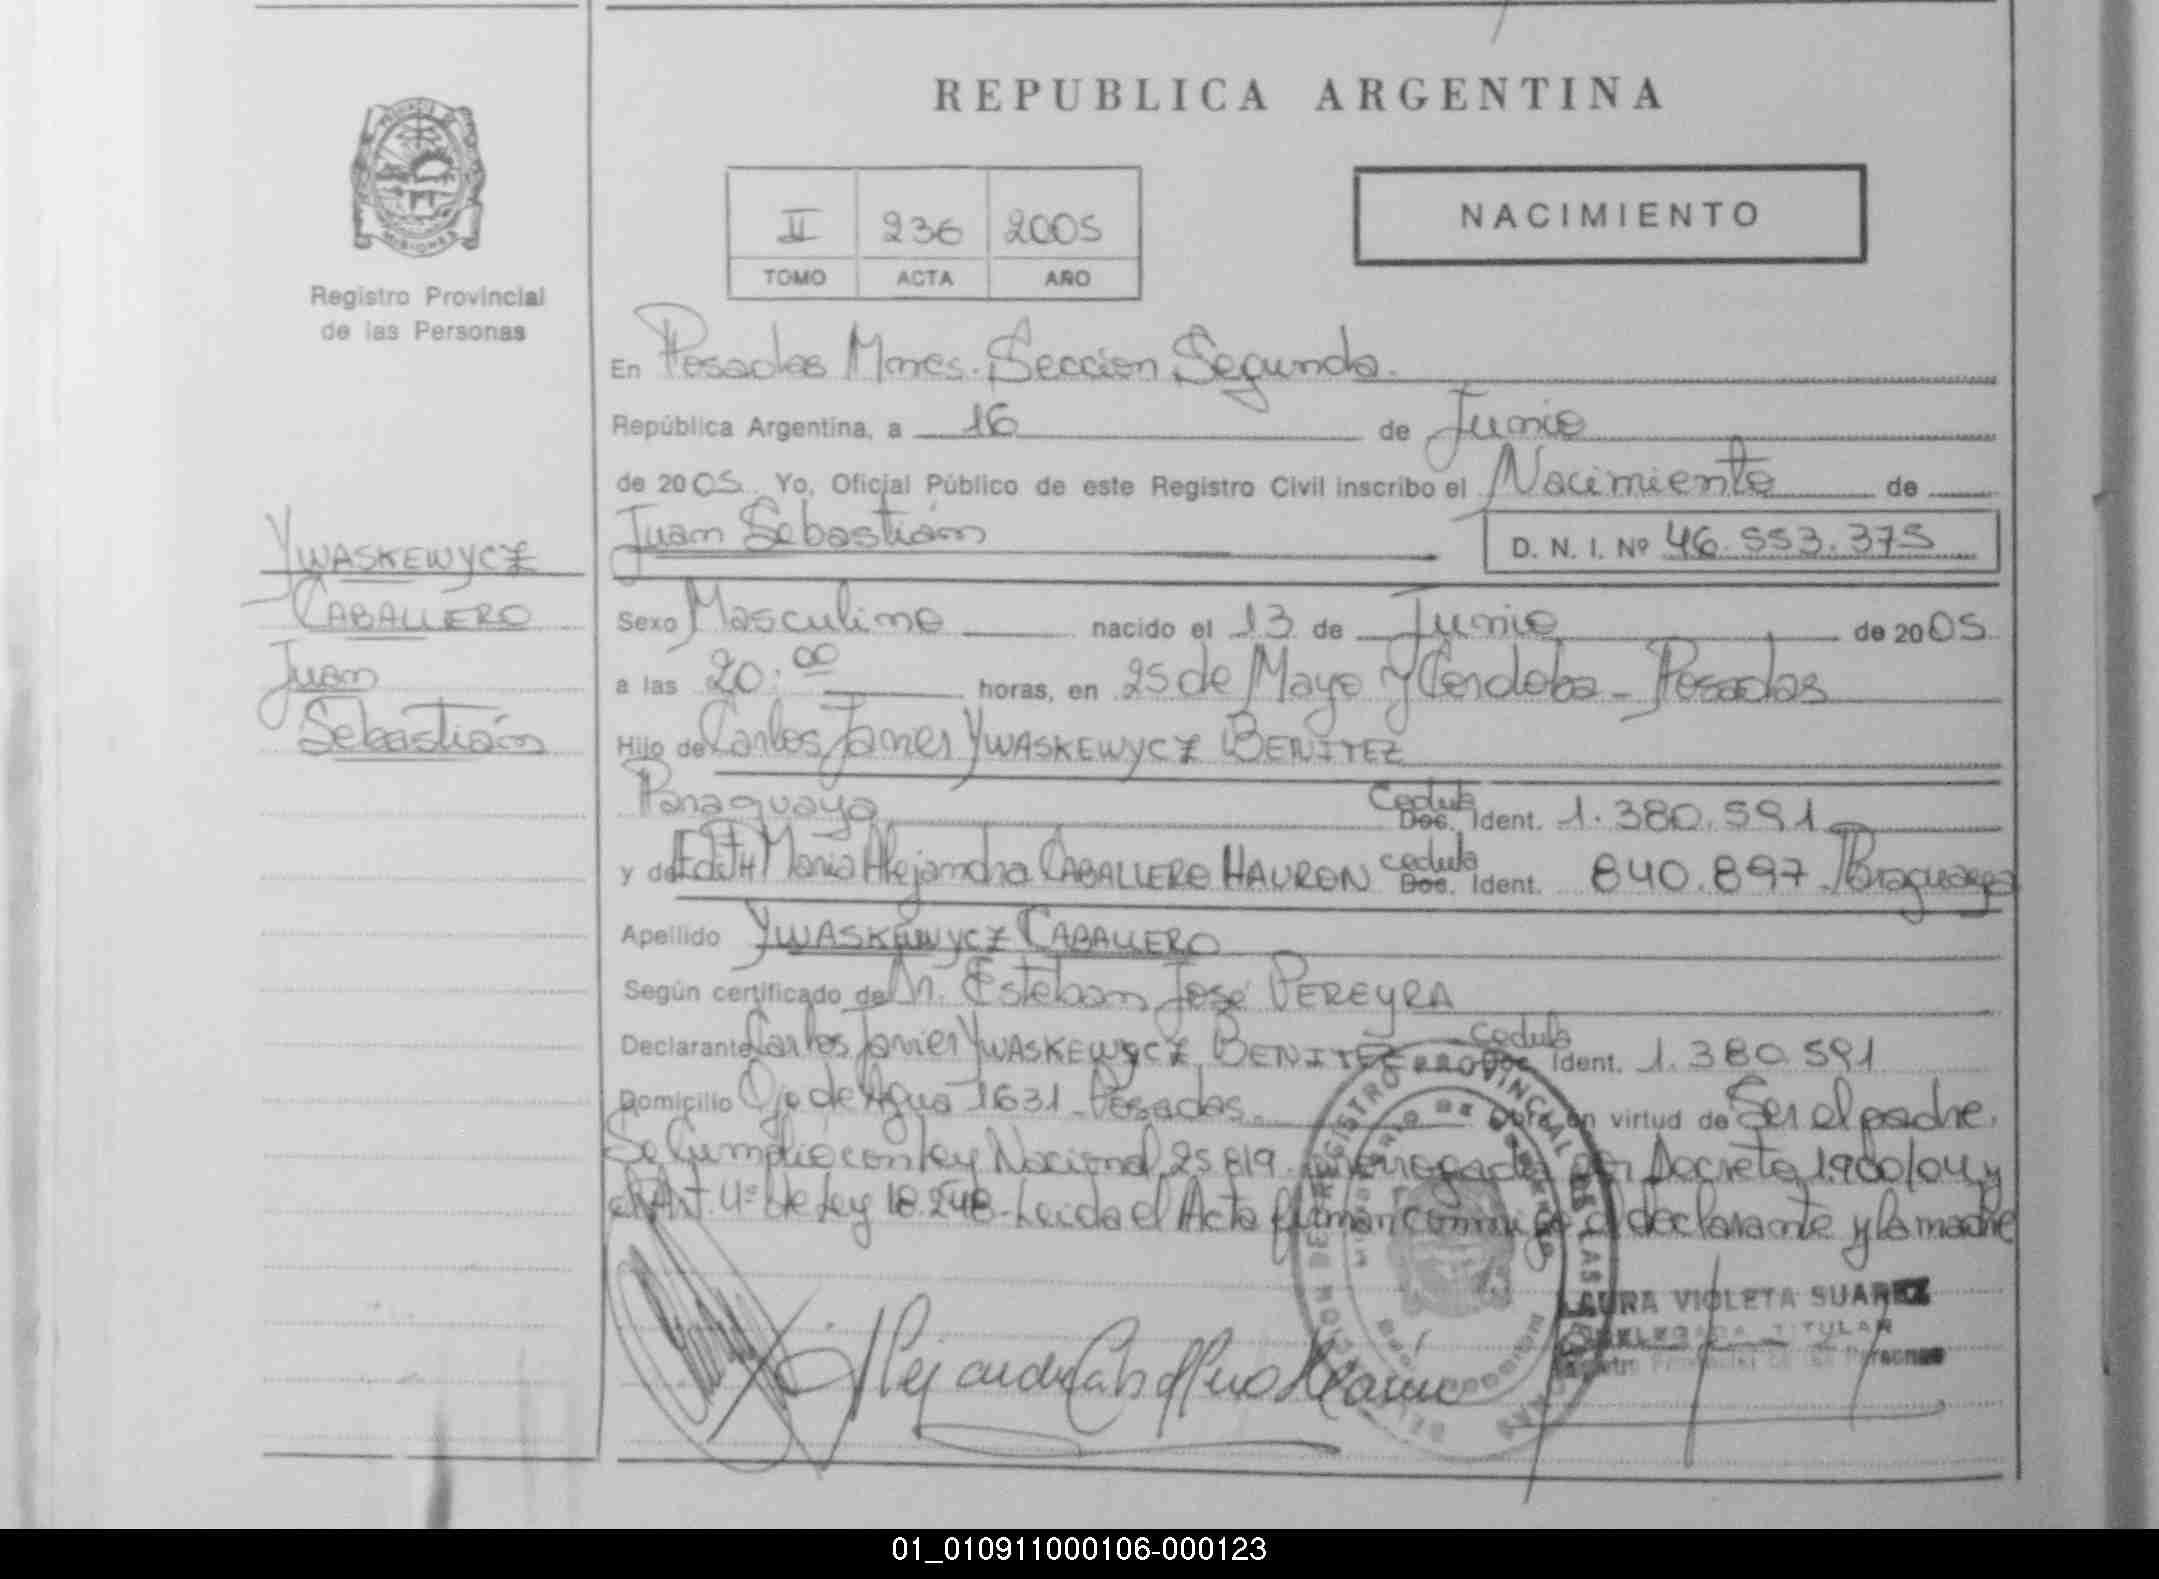 REPUBLICA ARGENTINA
PROVINCIA DE
MISIONES
Registro Provincial
de las Personas
II 236 2005
TOMO ACTA AÑO
NACIMIENTO
En Posadas Mnes. Sección Segunda.
República Argentina, a 16 de Junio
de 2005 Yo, Oficial Público de este Registro Civil inscribo el Nacimiento de
Juan Sebastián
D. N. I. Nº 46.553.375
YWASKEWYCZ
CABALLERO
Juan
Sebastián
Sexo Masculino nacido el 13 de Junio de 2005
a las 20:00 horas, en 25 de Mayo y Cordoba - Posadas
Hijo de Carlos Javier YWASKEWYCZ BENITEZ
Paraguaya Cedula Doc. Ident. 1.380.591
y de Edith Maria Alejandra CABALLERO HAURON cedula Doc. Ident. 840.897 Paraguaya
Apellido YWASKEWYCZ CABALLERO
Según certificado de Dr. Esteban José PEREYRA
Declarante Carlos Javier YWASKEWYCZ BENITEZ Cedula Doc. Ident. 1.380.591
Domicilio Ojo de Agua 1631 - Posadas. Obra en virtud de Ser el padre.
Se Cumplió con ley Nacional 25.819. prorrogada por Decreto 1.900/04 y
el Art. 4º de Ley 18.248 - Leida el Acta firman conmigo el declarante y la madre
LAURA VIOLETA SUAREZ
DELEGADA TITULAR
Registro Provincial de las Personas
REGISTRO PROVINCIAL DE LAS
01_010911000106-000123